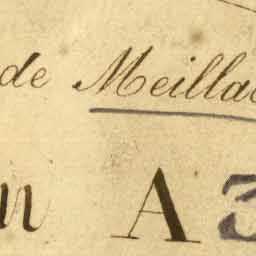 de Meillac
n A 3